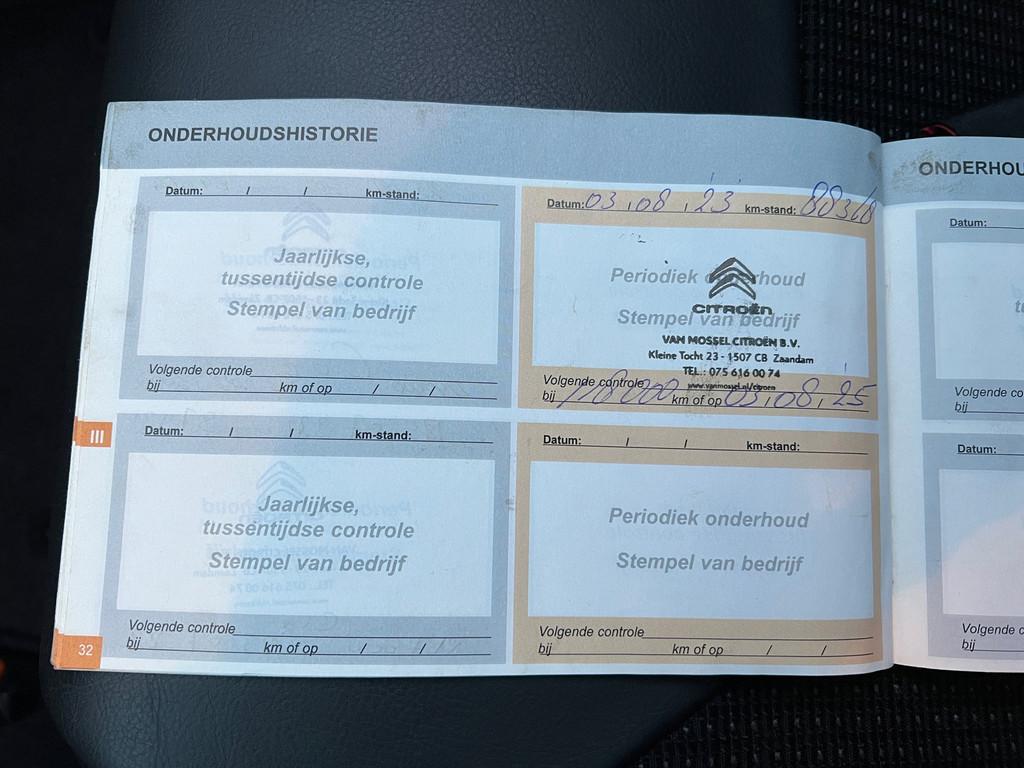 ONDERHOUDSHISTORIE
Datum: / / km-stand:
Jaarlijkse,
tussentijdse controle
Stempel van bedrijf
Volgende controle
bij km of op / /
Datum: 03 / 08 / 23 km-stand: 88318
Periodiek onderhoud
Stempel van bedrijf
CITROËN
VAN MOSSEL CITROËN B.V.
Kleine Tocht 23 - 1507 CB Zaandam
TEL.: 075 616 00 74
www.vanmossel.nl/citroen
Volgende controle
bij 118000 km of op 03 / 08 / 25
III
Datum: / / km-stand:
Jaarlijkse,
tussentijdse controle
Stempel van bedrijf
Volgende controle
bij km of op / /
Datum: / / km-stand:
Periodiek onderhoud
Stempel van bedrijf
Volgende controle
bij km of op / /
32
ONDERHOU
Datum:
Volgende co
bij
Datum:
Volgende c
bij